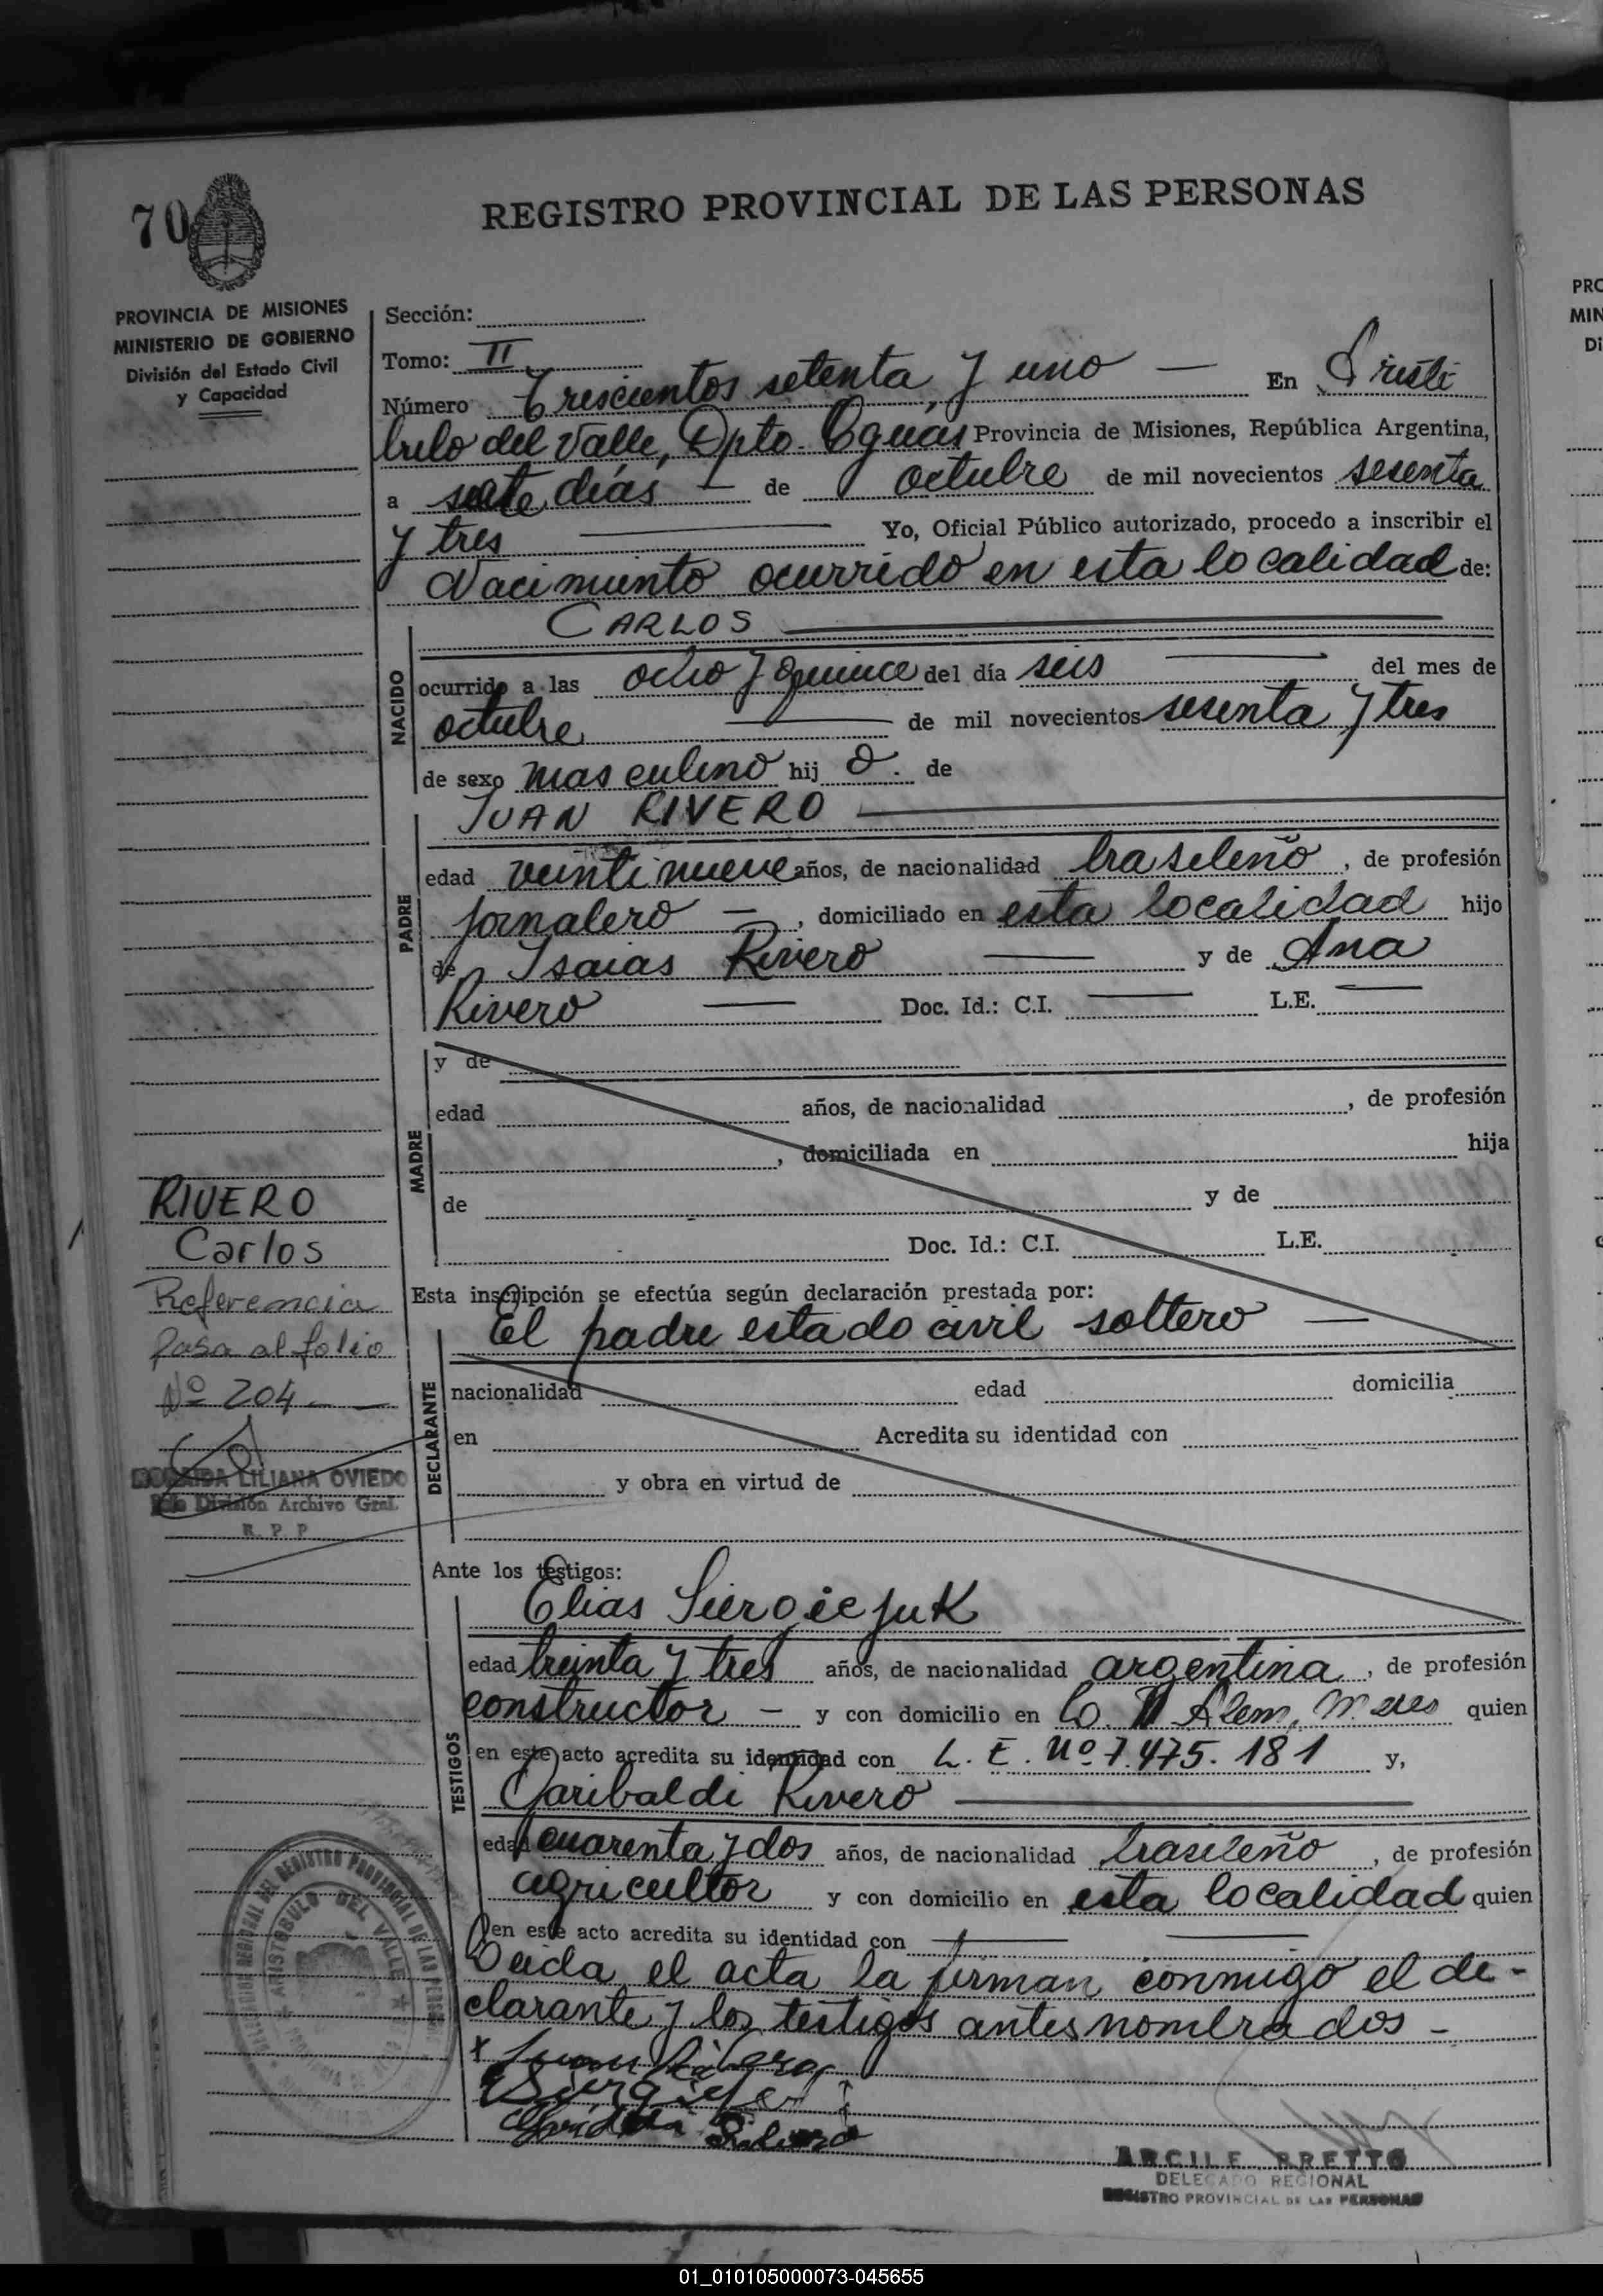 70
REGISTRO PROVINCIAL DE LAS PERSONAS
PROVINCIA DE MISIONES
MINISTERIO DE GOBIERNO
División del Estado Civil
y Capacidad
Sección:
Tomo: II
Número Trescientos setenta y uno — En Aristó
bulo del Valle, Dpto. Cguas Provincia de Misiones, República Argentina,
a siete días — de octubre de mil novecientos sesenta
y tres — Yo, Oficial Público autorizado, procedo a inscribir el
Nacimiento ocurrido en esta localidad de:
NACIDO
CARLOS
ocurrido a las ocho y quince del día seis — del mes de
octubre — de mil novecientos sesenta y tres
de sexo masculino hij o. de
PADRE
JUAN RIVERO
edad veintinueve años, de nacionalidad brasileño, de profesión
jornalero —, domiciliado en esta localidad hijo
de Isaias Rivero — y de Ana
Rivero — Doc. Id.: C.I. — L.E. —
MADRE
y de
edad años, de nacionalidad , de profesión
, domiciliada en hija
de y de
Doc. Id.: C.I. L.E.
RIVERO
Carlos
Referencia
Pasa al folio
Nº 204 —
LILIANA OVIEDO
División Archivo Gral.
R. P. P
Esta inscripción se efectúa según declaración prestada por:
DECLARANTE
El padre estado civil soltero —
nacionalidad edad domicilia
en Acredita su identidad con
y obra en virtud de
Ante los testigos:
TESTIGOS
Elias Siergiejuk
edad treinta y tres años, de nacionalidad argentina, de profesión
constructor — y con domicilio en L. N Alem, Mnes quien
en este acto acredita su identidad con L. E. Nº 7.475.181 y,
Garibaldi Rivero —
edad cuarenta y dos años, de nacionalidad brasileño, de profesión
agricultor y con domicilio en esta localidad quien
en este acto acredita su identidad con —
Leida el acta la firman conmigo el de-
clarante y los testigos antes nombrados -
ARISTOBULO DEL VALLE
REGISTRO PROVINCIAL DE LAS
ARCILE BRETTO
DELEGADO REGIONAL
REGISTRO PROVINCIAL DE LAS PERSONAS
PRO
MIN
Di
01_010105000073-045655